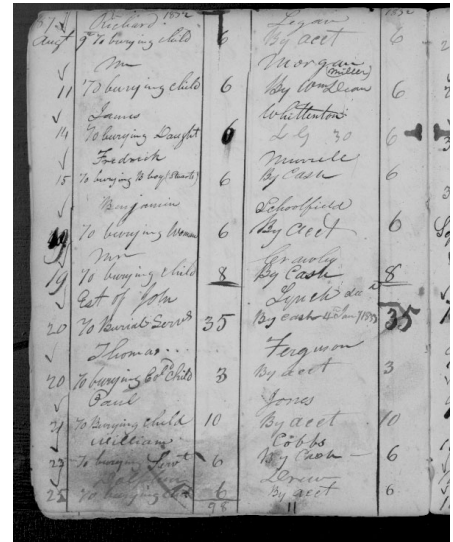 Richard 1852 Logan 1852
Augt 9th To burying child 6 By acct 6
Mr Morgan
11 To burying child 6 By Wm Dean (Miller) 6
James Whittenton
14 To burying Daught 6 L G 30 6
Fredrick Murrell
15 To burying B boy (Stuarts) 6 By Cash 6
Benjamin Schoolfield
19 To burying Woman 6 By acct 6
Mr Crawley
19 To burying child 8 By Cash 8
Est of John Lynch decd
20 To Burial Servs 35 By cash 4 Jany 1853 35
Thomas Ferguson
20 To burying Cold Child 3 By acct 3
Paul Jones
21 To Burying child 10 By acct 10
William Cobbs
23 To burying Servt 6 By Cash 6
Drew
25 To burying 6 By acct 6
98 11